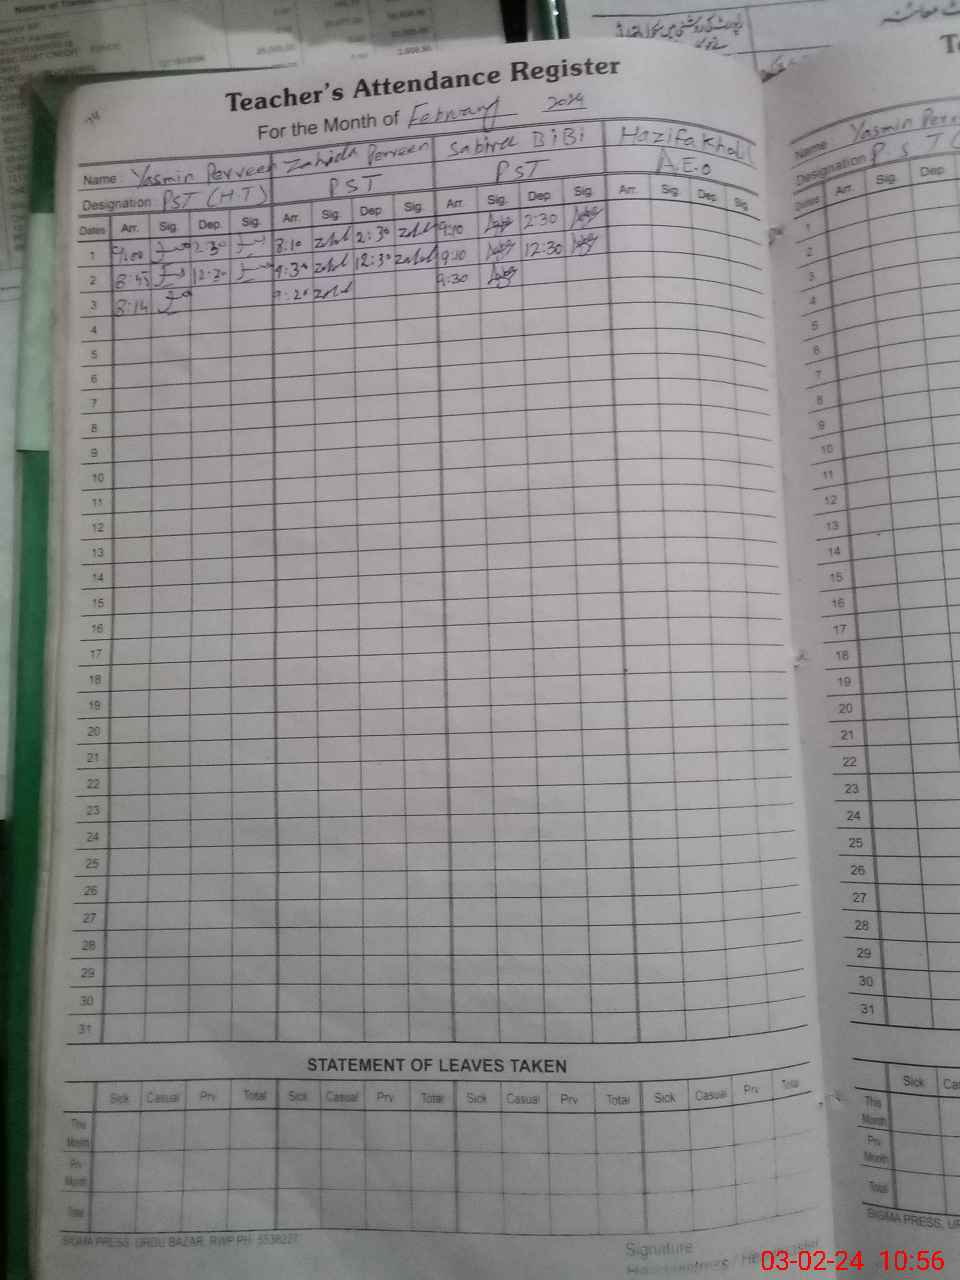 Teacher's Attendance Register
For the Month of February 2024
Name : Yasmin Perveen Zahida Perveen Sabira BiBi Hazifa Khalil
Designation : PST (H.T) PST PST A.E.O
Dates Arr. Sig. Dep. Sig. Arr. Sig. Dep. Sig. Arr. Sig. Dep. Sig. Arr. Sig. Dep. Sig.
1 9:00 2:30 8:10 2:30 9:10 2:30
2 8:45 12:30 9:30 12:30 9:10 12:30
3 8:14 9:20 9:30
4
5
6
7
8
9
10
11
12
13
14
15
16
17
18
19
20
21
22
23
24
25
26
27
28
29
30
31
STATEMENT OF LEAVES TAKEN
Sick Casual Prv. Total Sick Casual Prv. Total Sick Casual Prv. Total Sick Casual Prv. Total
This Month
Prv. Month
Total
SIGMA PRESS, URDU BAZAR, RWP PH: 5538227
Signature
Name Yasmin
Designation P.S.T
Dates Arr. Sig. Dep.
1
2
3
4
5
6
7
8
9
10
11
12
13
14
15
16
17
18
19
20
21
22
23
24
25
26
27
28
29
30
31
Sick
This Month
Prv. Month
Total
SIGMA PRESS,
03-02-24 10:56